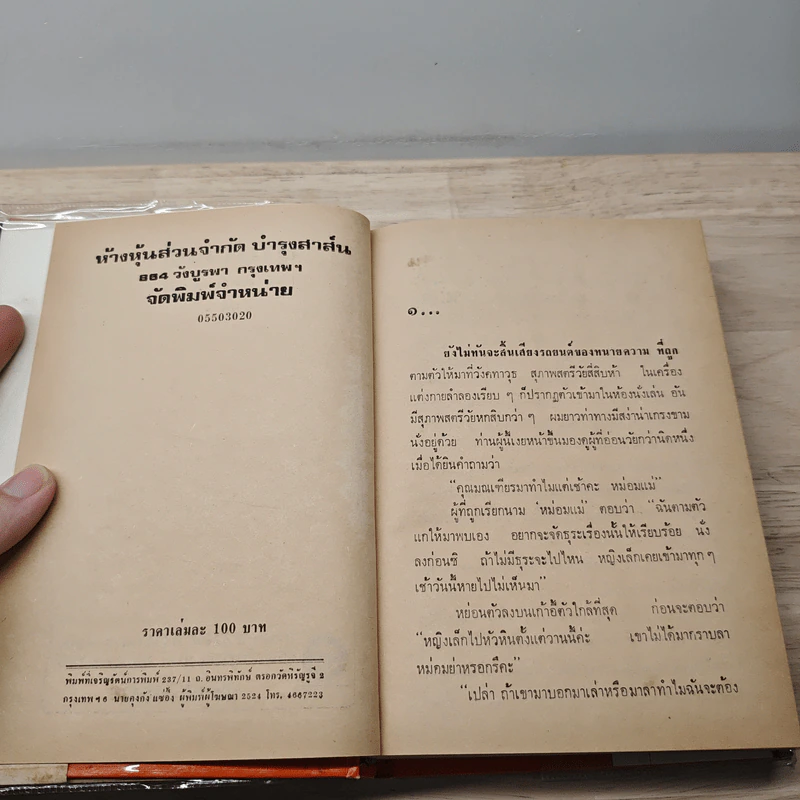 ห้างหุ้นส่วนจำกัด บำรุงสาส์น
884 วังบูรพา กรุงเทพฯ
จัดพิมพ์จำหน่าย
05503020
ราคาเล่มละ 100 บาท
พิมพ์ที่เจริญรัตน์การพิมพ์ 237/11 ถ. อินทรพิทักษ์ ตรอกวัดหิรัญรูจี 2
กรุงเทพฯ 6 นายคุงกัง แซ่อึ้ง ผู้พิมพ์ผู้โฆษณา 2524 โทร. 4667223
๑...
ยังไม่ทันจะสิ้นเสียงรถยนต์ของทนายความ ที่ถูก
ตามตัวให้มาที่วังคทาวุธ สุภาพสตรีวัยสี่สิบห้า ในเครื่อง
แต่งกายลำลองเรียบ ๆ ก็ปรากฏตัวเข้ามาในห้องนั่งเล่น อัน
มีสุภาพสตรีวัยหกสิบกว่า ๆ ผมยาวท่าทางมีสง่าน่าเกรงขาม
นั่งอยู่ด้วย ท่านผู้นี้เงยหน้าขึ้นมองดูผู้ที่อ่อนวัยกว่านิดหนึ่ง
เมื่อได้ยินคำถามว่า
“คุณมณเฑียรมาทำไมแต่เช้าคะ หม่อมแม่”
ผู้ที่ถูกเรียกนาม ‘หม่อมแม่’ ตอบว่า “ฉันตามตัว
แกให้มาพบเอง อยากจะจัดธุระเรื่องนั้นให้เรียบร้อย นั่ง
ลงก่อนซิ ถ้าไม่มีธุระจะไปไหน หญิงเล็กเคยเข้ามาทุกๆ
เช้าวันนี้หายไปไม่เห็นมา”
หย่อนตัวลงบนเก้าอี้ตัวใกล้ที่สุด ก่อนจะตอบว่า
“หญิงเล็กไปหัวหินตั้งแต่วานนี้ค่ะ เขาไม่ได้มากราบลา
หม่คมย่าหรอกรึคะ”
“เปล่า ถ้าเขามาบอกมาเล่าหรือมาลาทำไมฉันจะต้อง